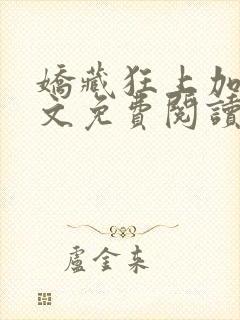 嬌藏狂上加
文免費閱讀
盧金來